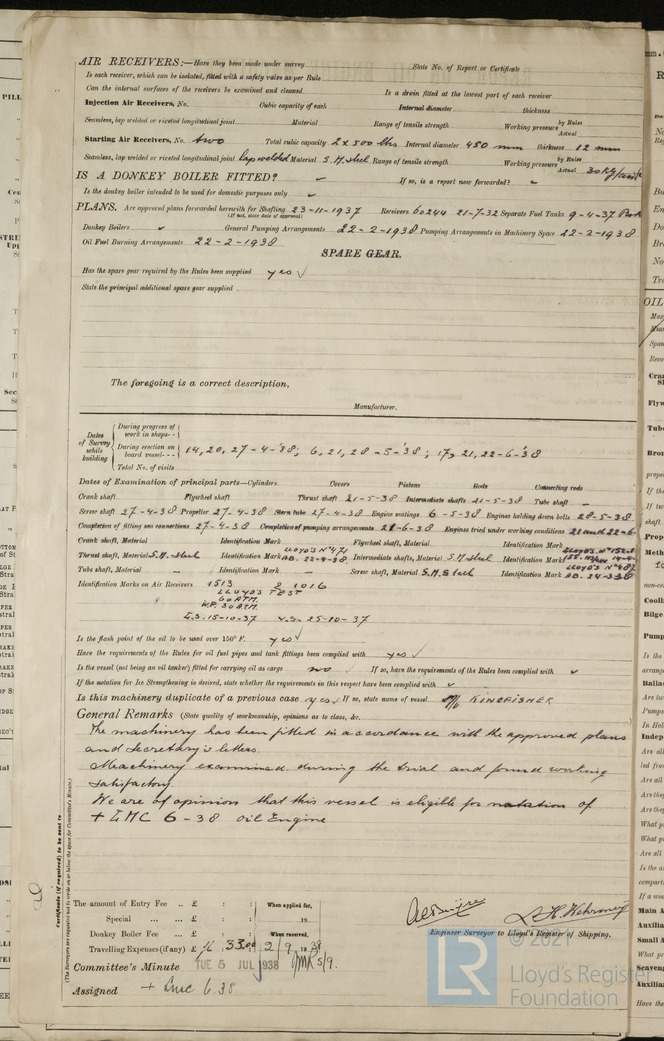 AIR RECEIVERS:—Have they been made under survey State No. of Report or Certificate
Is each receiver, which can be isolated, fitted with a safety valve as per Rule
Can the internal surfaces of the receivers be examined and cleaned Is a drain fitted at the lowest part of each receiver
Injection Air Receivers, No. Cubic capacity of each Internal diameter thickness
Seamless, lap welded or riveted longitudinal joint Material Range of tensile strength Working pressure by Rules Actual
Starting Air Receivers, No. two Total cubic capacity 2 x 500 lbs Internal diameter 450 mm thickness 12 mm
Seamless, lap welded or riveted longitudinal joint lap welded Material S.M. steel Range of tensile strength Working pressure by Rules Actual 30 kg/
IS A DONKEY BOILER FITTED? – If so, is a report now forwarded?
Is the donkey boiler intended to be used for domestic purposes only
PLANS. Are approved plans forwarded herewith for Shafting 23-11-1937 Receivers 60244 21-7-32 Separate Fuel Tanks 9-4-37
(If not, state date of approval)
Donkey Boilers General Pumping Arrangements 22-2-1938 Pumping Arrangements in Machinery Space 22-2-1938
Oil Fuel Burning Arrangements 22-2-1938
SPARE GEAR.
Has the spare gear required by the Rules been supplied yes ✓
State the principal additional spare gear supplied
The foregoing is a correct description,
Manufacturer.
Dates of Survey while building
During progress of work in shops - -
During erection on board vessel - - - 14, 20, 27-4-'38; 6, 21, 28-5-'38; 17, 21, 22-6-'38
Total No. of visits
Dates of Examination of principal parts—Cylinders Covers Pistons Rods Connecting rods
Crank shaft Flywheel shaft Thrust shaft 21-5-38 Intermediate shafts 21-5-38 Tube shaft –
Screw shaft 27-4-38 Propeller 27-4-38 Stern tube 27-4-38 Engine seatings 6-5-38 Engines holding down bolts 28-5-38
Completion of fitting sea connections 27-4-38 Completion of pumping arrangements 21-6-38 Engines tried under working conditions 21 and 22-6-
Crank shaft, Material Identification Mark Flywheel shaft, Material Identification Mark
Thrust shaft, Material S.M. steel Identification Mark LLOYD'S No 471 AB. 22-4-38 Intermediate shafts, Material S.M. steel Identification Mark LLOYD'S No
Tube shaft, Material – Identification Mark – Screw shaft, Material S.M. Steel Identification Mark LLOYD'S No 487 AB. 24-3-38
Identification Marks on Air Receivers 1513 & 1016
LLOYD'S TEST
60 ATM.
W.P. 30 ATM.
L.S. 15-10-37 25-10-37
Is the flash point of the oil to be used over 150° F. yes ✓
Have the requirements of the Rules for oil fuel pipes and tank fittings been complied with yes ✓
Is the vessel (not being an oil tanker) fitted for carrying oil as cargo no If so, have the requirements of the Rules been complied with
If the notation for Ice Strengthening is desired, state whether the requirements in this respect have been complied with
Is this machinery duplicate of a previous case yes If so, state name of vessel M/V KINGFISHER
General Remarks (State quality of workmanship, opinions as to class, &c.
The machinery has been fitted in accordance with the approved plans
and secretary's letters.
Machinery examined during the trial and found working
satisfactory.
We are of opinion that this vessel is eligible for notation of
+ LMC 6-38 oil Engine
Certificate (if required) to be sent to
(The Surveyors are requested not to write on or below the space for Committee's Minute.)
The amount of Entry Fee .. £ : : When applied for,
Special ... ... £ : : 19
Donkey Boiler Fee ... £ : : When received,
Travelling Expenses (if any) £ 33.00 2/9 1938
Engineer Surveyor to Lloyd's Register of Shipping.
Committee's Minute TUE 5 JUL 1938
Assigned + LMC 6.38
LR © 2021
Lloyd's Register
Foundation